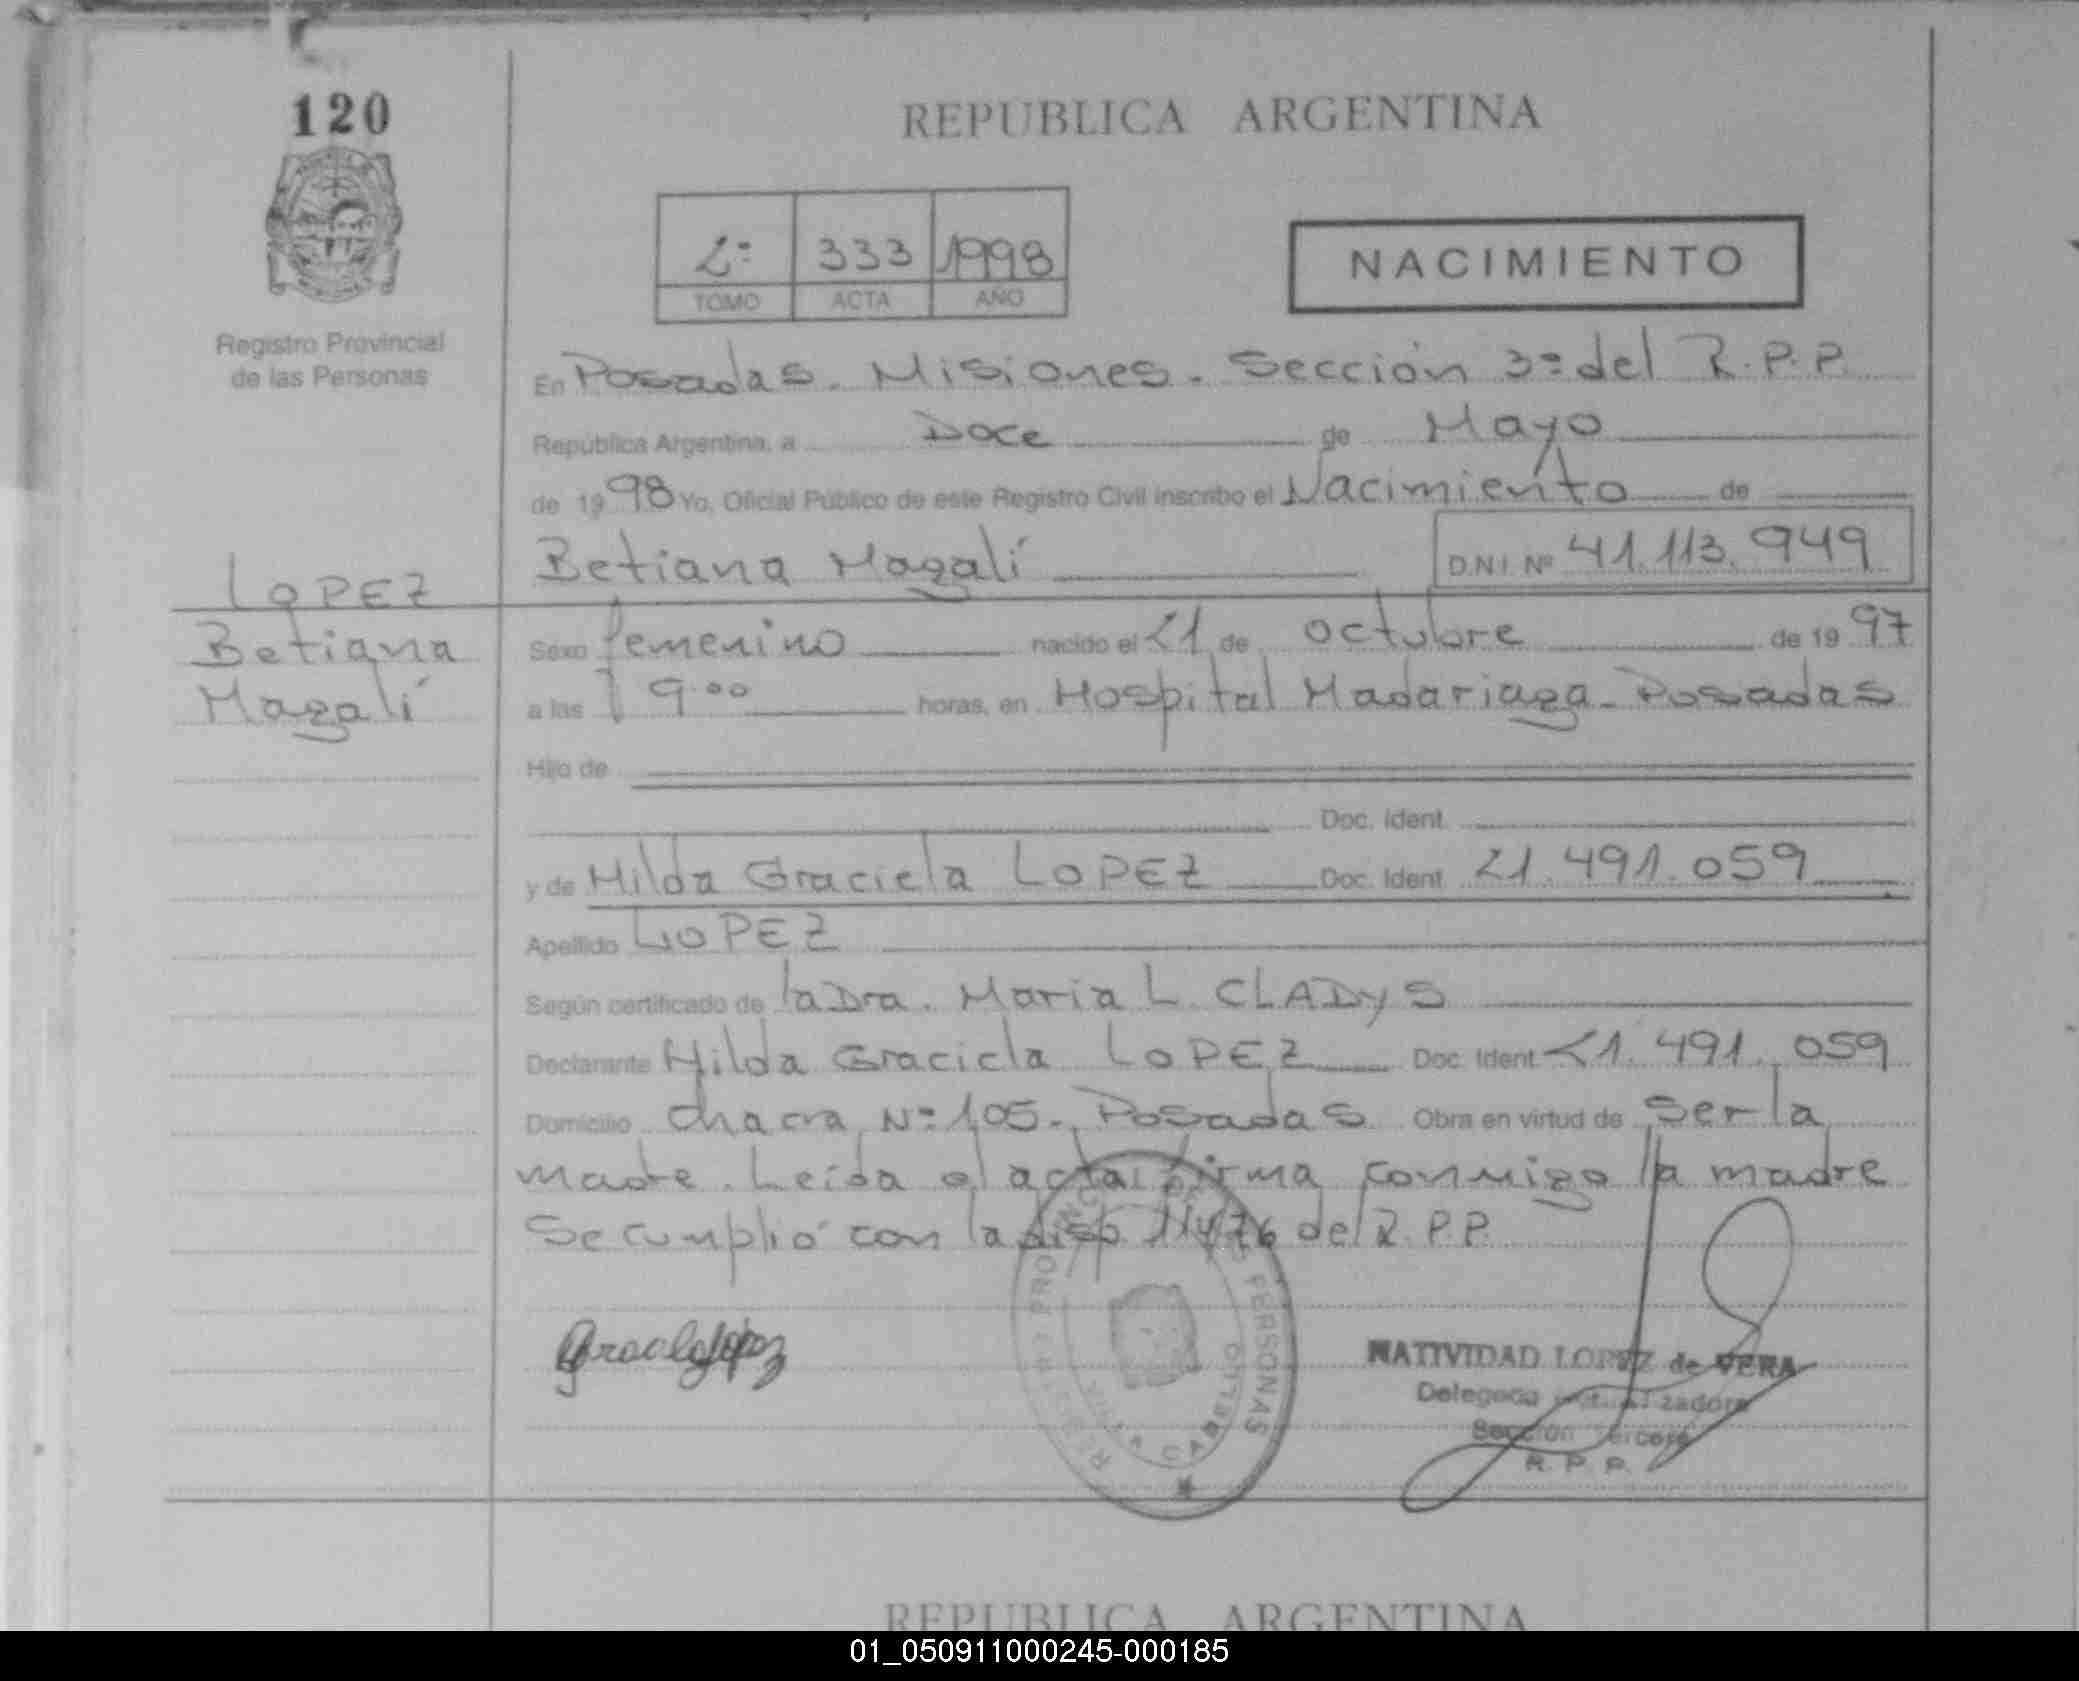 120
REPUBLICA ARGENTINA
2º 333 1998
TOMO ACTA AÑO
NACIMIENTO
Registro Provincial
de las Personas
En Posadas - Misiones - Sección 3º del R.P.P.
República Argentina, a Doce de Mayo
de 1998 Yo, Oficial Público de este Registro Civil inscribo el Nacimiento de
Betiana Magalí D.N.I. Nº 41.113.949
LOPEZ
Betiana
Magalí
Sexo femenino nacido el 21 de octubre de 1997
a las 9.00 horas, en Hospital Madariaga - Posadas
Hijo de
Doc. Ident.
y de Hilda Graciela LOPEZ Doc. Ident. 21.491.059
Apellido LOPEZ
Según certificado de la Dra. Maria L. CLADYS
Declarante Hilda Graciela LOPEZ Doc. Ident. 21.491.059
Domicilio chacra Nº 105 - Posadas Obra en virtud de ser la
madre. Leída el acta firma conmigo la madre
Se cumplió con la disp. 11/76 del R.P.P.
Graciela López
REGISTRO PERSONAS
CABELLO
NATIVIDAD LOPEZ de VERA
Delegada
Sección Tercera
R. P. P.
REPUBLICA ARGENTINA
01_050911000245-000185